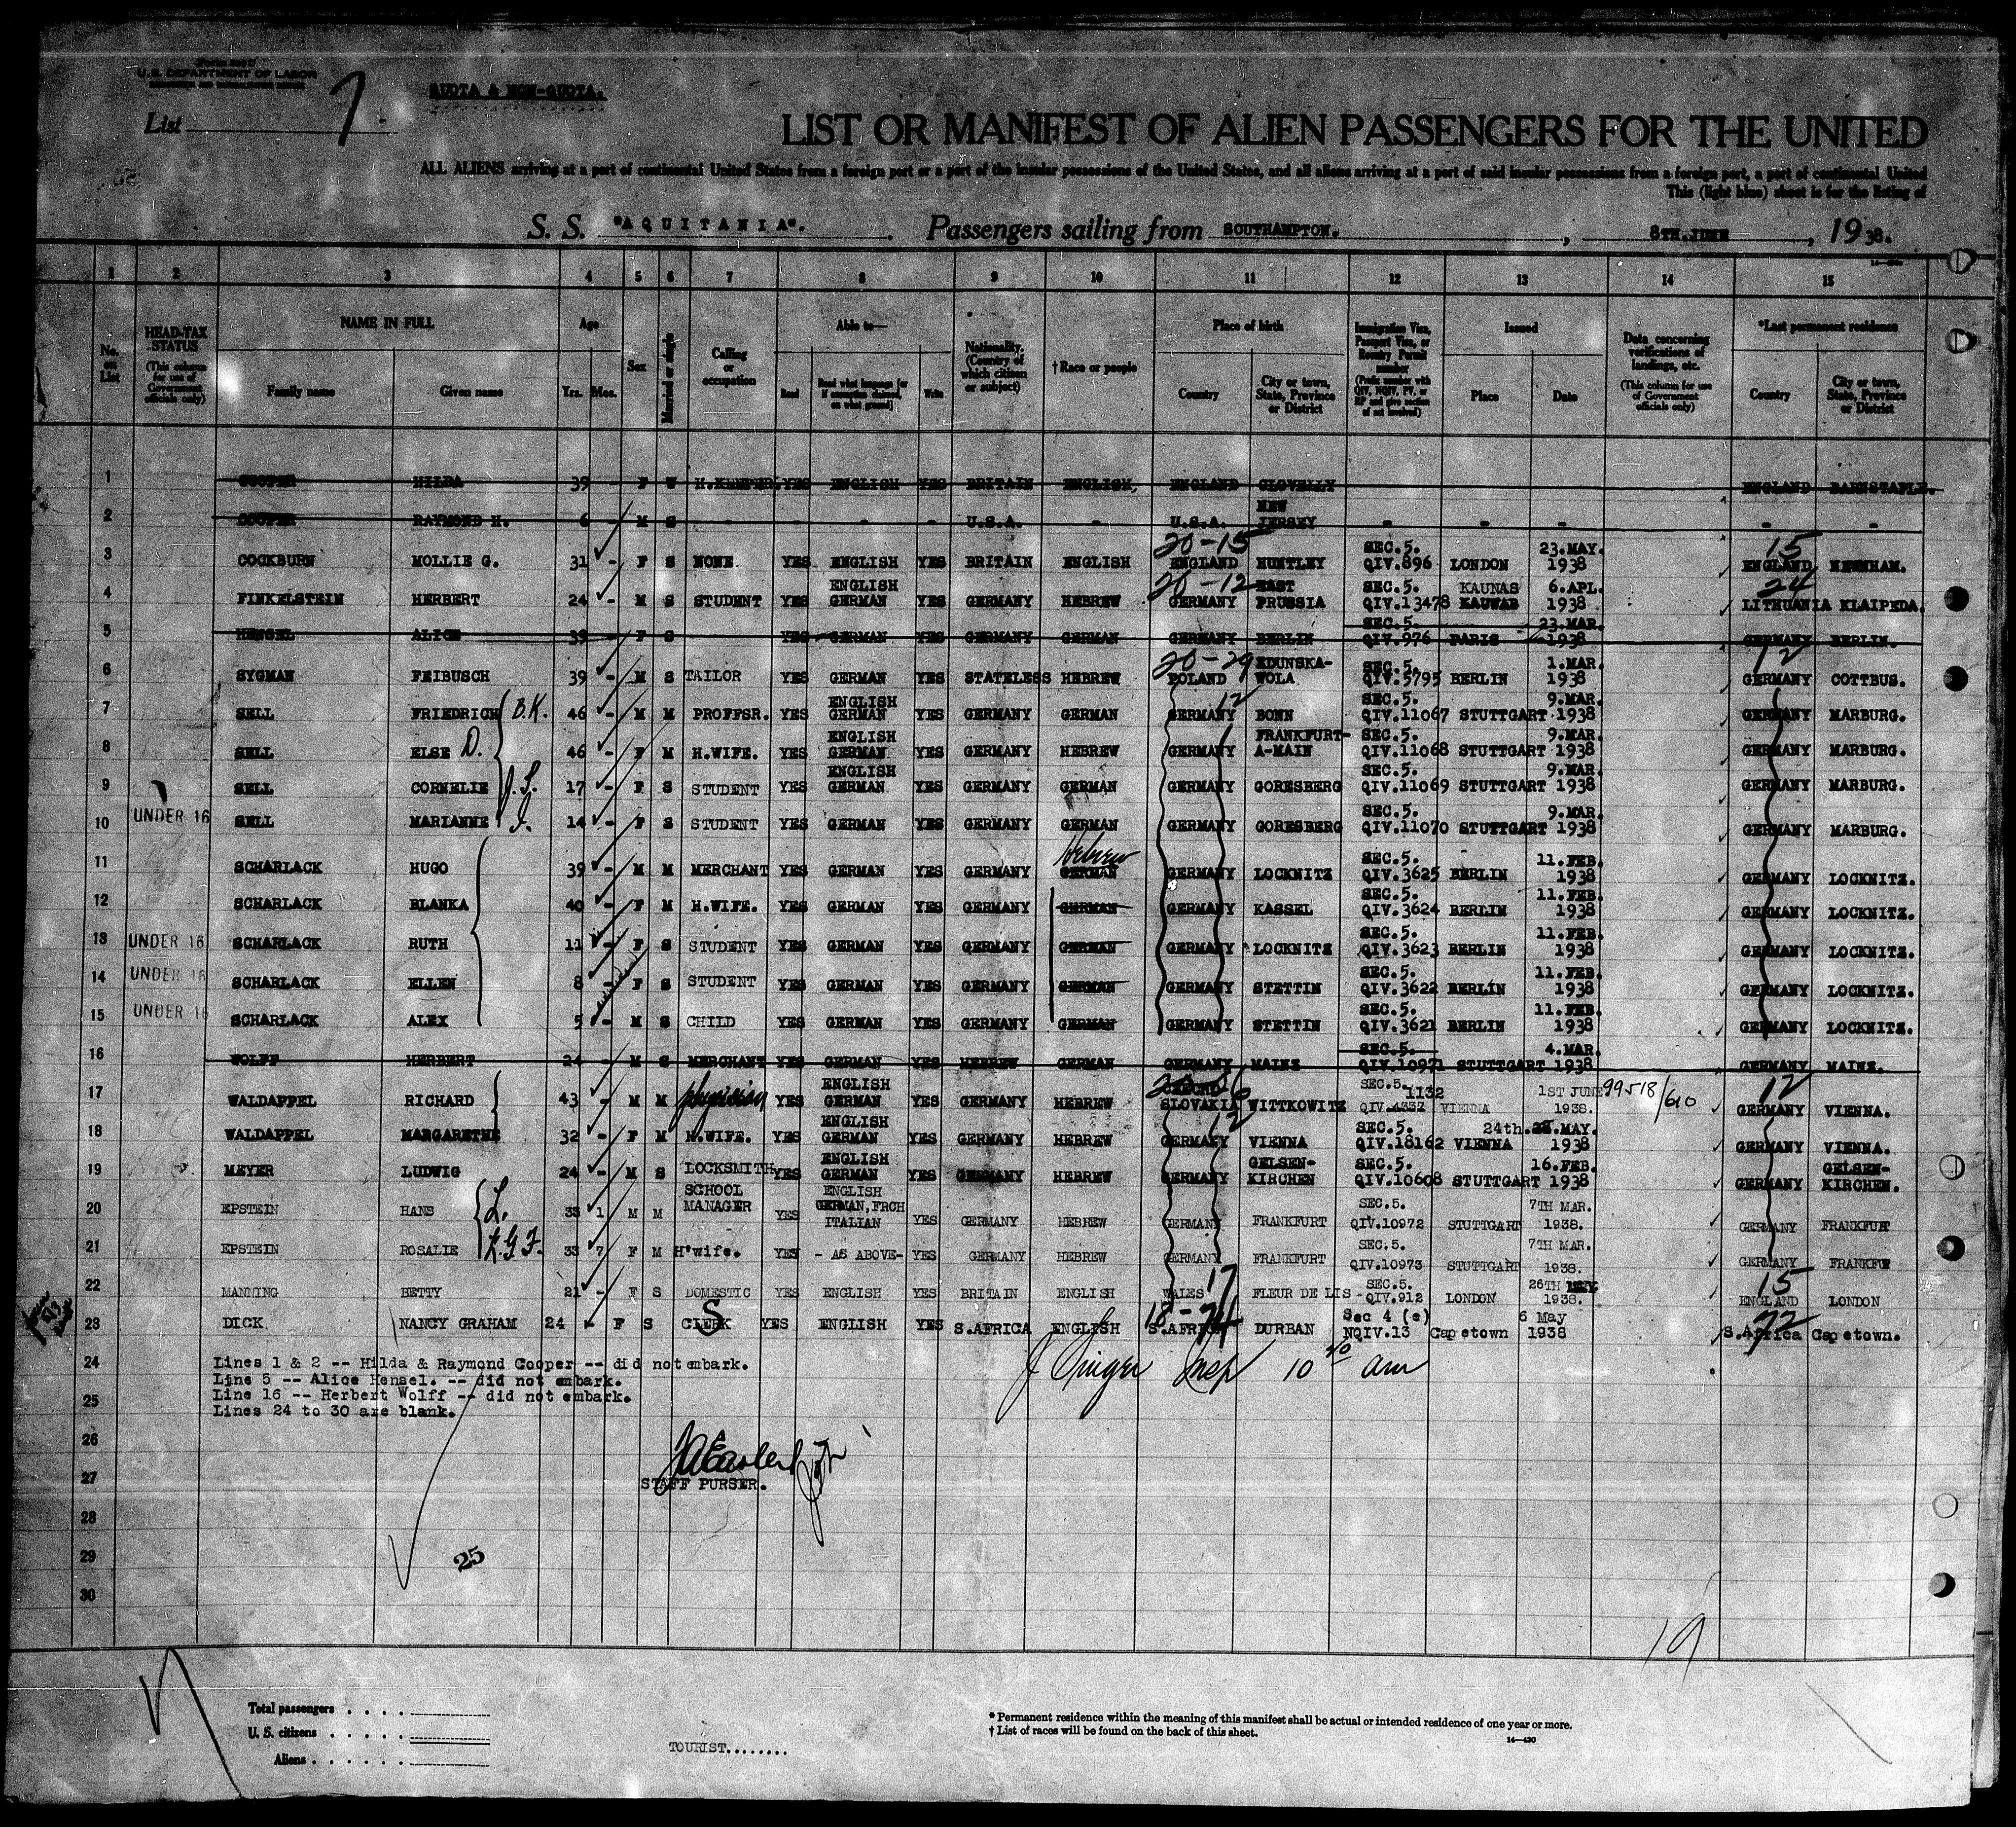 Form 500 U
U.S. DEPARTMENT OF LABOR
List 7
QUOTA & NON-QUOTA.
LIST OR MANIFEST OF ALIEN PASSENGERS FOR THE UNITED
ALL ALIENS arriving at a port of continental United States from a foreign port or a port of the insular possessions of the United States, and all aliens arriving at a port of said insular possessions from a foreign port, a port of continental United
This (light blue) sheet is for the listing of
S. S. "AQUITANIA". Passengers sailing from SOUTHAMPTON. , 8TH.JUNE , 1938.
1 2 3 4 5 6 7 8 9 10 11 12 13 14 15
No. on List
HEAD-TAX STATUS (This column for use of Government officials only)
NAME IN FULL Family name Given name
Age Yrs. Mos.
Sex
Married or single
Calling or occupation
Able to— Read Read what language [or if exemption claimed, on what ground] Write
Nationality. (Country of which citizen or subject)
†Race or people
Place of birth Country City or town, State, Province or District
Immigration Visa, Passport Visa, or Reentry Permit number (Prefix number with QIV, NQIV, PV, or RP and give section of act involved)
Issued Place Date
Data concerning verifications of landings, etc. (This column for use of Government officials only)
*Last permanent residence Country City or town, State, Province or District
1 COOPER HILDA 39 - F W H.KEEPER. YES ENGLISH YES BRITAIN ENGLISH. ENGLAND CLOVELLY ENGLAND BARNSTAPLE.
2 COOPER RAYMOND H. 6 - M S - - - - U.S.A. - U.S.A. NEW JERSEY - - - - -
3 COCKBURN MOLLIE G. 31 - F S NONE YES ENGLISH YES BRITAIN ENGLISH 20-15 ENGLAND HUNTLEY SEC.5. QIV.896 LONDON 23.MAY. 1938 15 ENGLAND NEWNHAM.
4 FINKELSTEIN HERBERT 24 - M S STUDENT YES ENGLISH GERMAN YES GERMANY HEBREW 20-12 GERMANY EAST PRUSSIA SEC.5. QIV.13478 KAUNAS KAUWAB 6.APL. 1938 24 LITHUANIA KLAIPEDA.
5 HENSEL ALICE 39 - F S YES GERMAN YES GERMANY GERMAN GERMANY BERLIN SEC.5. QIV.976 PARIS 23.MAR. 1938 GERMANY BERLIN.
6 SYGMAN FEIBUSCH 39 - M S TAILOR YES GERMAN YES STATELESS HEBREW 20-29 POLAND EDUNSKA-WOLA SEC.5. QIV.5795 BERLIN 1.MAR. 1938 12 GERMANY COTTBUS.
7 SELL FRIEDRICH B.K. 46 - M M PROFFSR. YES ENGLISH GERMAN YES GERMANY GERMAN 12 GERMANY BONN SEC.5. QIV.11067 STUTTGART 9.MAR. 1938 GERMANY MARBURG.
8 SELL ELSE D. 46 - F M H.WIFE. YES ENGLISH GERMAN YES GERMANY HEBREW GERMANY FRANKFURT-A-MAIN SEC.5. QIV.11068 STUTTGART 9.MAR. 1938 GERMANY MARBURG.
9 SELL CORNELIE J.L. 17 - F S STUDENT YES ENGLISH GERMAN YES GERMANY GERMAN GERMANY GORESBERG SEC.5. QIV.11069 STUTTGART 9.MAR. 1938 GERMANY MARBURG.
10 UNDER 16 SELL MARIANNE J. 14 - F S STUDENT YES GERMAN YES GERMANY GERMAN GERMANY GORESBERG SEC.5. QIV.11070 STUTTGART 9.MAR. 1938 GERMANY MARBURG.
11 SCHARLACK HUGO 39 - M M MERCHANT YES GERMAN YES GERMANY Hebrew GERMAN GERMANY LOCKNITZ SEC.5. QIV.3625 BERLIN 11.FEB. 1938 GERMANY LOCKNITZ.
12 SCHARLACK BLANKA 40 - F M H.WIFE. YES GERMAN YES GERMANY GERMAN GERMANY KASSEL SEC.5. QIV.3624 BERLIN 11.FEB. 1938 GERMANY LOCKNITZ.
13 UNDER 16 SCHARLACK RUTH 11 - F S STUDENT YES GERMAN YES GERMANY GERMAN GERMANY LOCKNITZ SEC.5. QIV.3623 BERLIN 11.FEB. 1938 GERMANY LOCKNITZ.
14 UNDER 16 SCHARLACK ELLEN 8 - F S STUDENT YES GERMAN YES GERMANY GERMAN GERMANY STETTIN SEC.5. QIV.3622 BERLIN 11.FEB. 1938 GERMANY LOCKNITZ.
15 UNDER 16 SCHARLACK ALEX 5 - M S CHILD YES GERMAN YES GERMANY GERMAN GERMANY STETTIN SEC.5. QIV.3621 BERLIN 11.FEB. 1938 GERMANY LOCKNITZ.
16 WOLFF HERBERT 24 - M S MERCHANT YES GERMAN YES HEBREW GERMAN GERMANY MAINZ SEC.5. QIV.10971 STUTTGART 4.MAR. 1938 GERMANY MAINZ.
17 WALDAPPEL RICHARD 43 - M M physician YES ENGLISH GERMAN YES GERMANY HEBREW SLOVAKIA WITTKOWITZ SEC.5. 1132 QIV. VIENNA 1ST JUNE 1938. 99518/610 12 GERMANY VIENNA.
18 WALDAPPEL MARGARETHE 32 - F M H.WIFE. YES ENGLISH GERMAN YES GERMANY HEBREW 12 GERMANY VIENNA SEC.5. QIV.18162 VIENNA 24th. MAY. 1938 GERMANY VIENNA.
19 MEYER LUDWIG 24 - M S LOCKSMITH YES ENGLISH GERMAN YES GERMANY HEBREW GERMANY GELSEN-KIRCHEN SEC.5. QIV.10608 STUTTGART 16.FEB. 1938 GERMANY GELSEN-KIRCHEN.
20 EPSTEIN HANS L. 33 1 M M SCHOOL MANAGER YES ENGLISH GERMAN, FRCH ITALIAN YES GERMANY HEBREW GERMANY FRANKFURT SEC.5. QIV.10972 STUTTGART 7TH MAR. 1938. GERMANY FRANKFUT
21 EPSTEIN ROSALIE L.G.F. 33 7 F M H'wife. YES - AS ABOVE- YES GERMANY HEBREW GERMANY FRANKFURT SEC.5. QIV.10973 STUTTGART 7TH MAR. 1938. GERMANY FRANKFUT
22 MANNING BETTY 21 - F S DOMESTIC YES ENGLISH YES BRITAIN ENGLISH 17 WALES FLEUR DE LIS - SEC.5. QIV.912 LONDON 26TH MAY 1938. 15 ENGLAND LONDON
23 DICK NANCY GRAHAM 24 - F S CLERK S YES ENGLISH YES S.AFRICA ENGLISH 18-74 S.AFRICA DURBAN Sec 4 (e) NQIV.13 Capetown 6 May 1938 72 S.Africa Capetown.
24 Lines 1 & 2 -- Hilda & Raymond Cooper -- did not embark.
Line 5 -- Alice Hensel. -- did not embark.
25 Line 16 -- Herbert Wolff -- did not embark.
Lines 24 to 30 are blank.
J Singer Insp 10 20 am
26
27 STAFF PURSER.
28
29 25
30
19
Total passengers . . . .
U. S. citizens . . . . .
Aliens . . . . . .
TOURIST........
* Permanent residence within the meaning of this manifest shall be actual or intended residence of one year or more.
† List of races will be found on the back of this sheet.
14—430